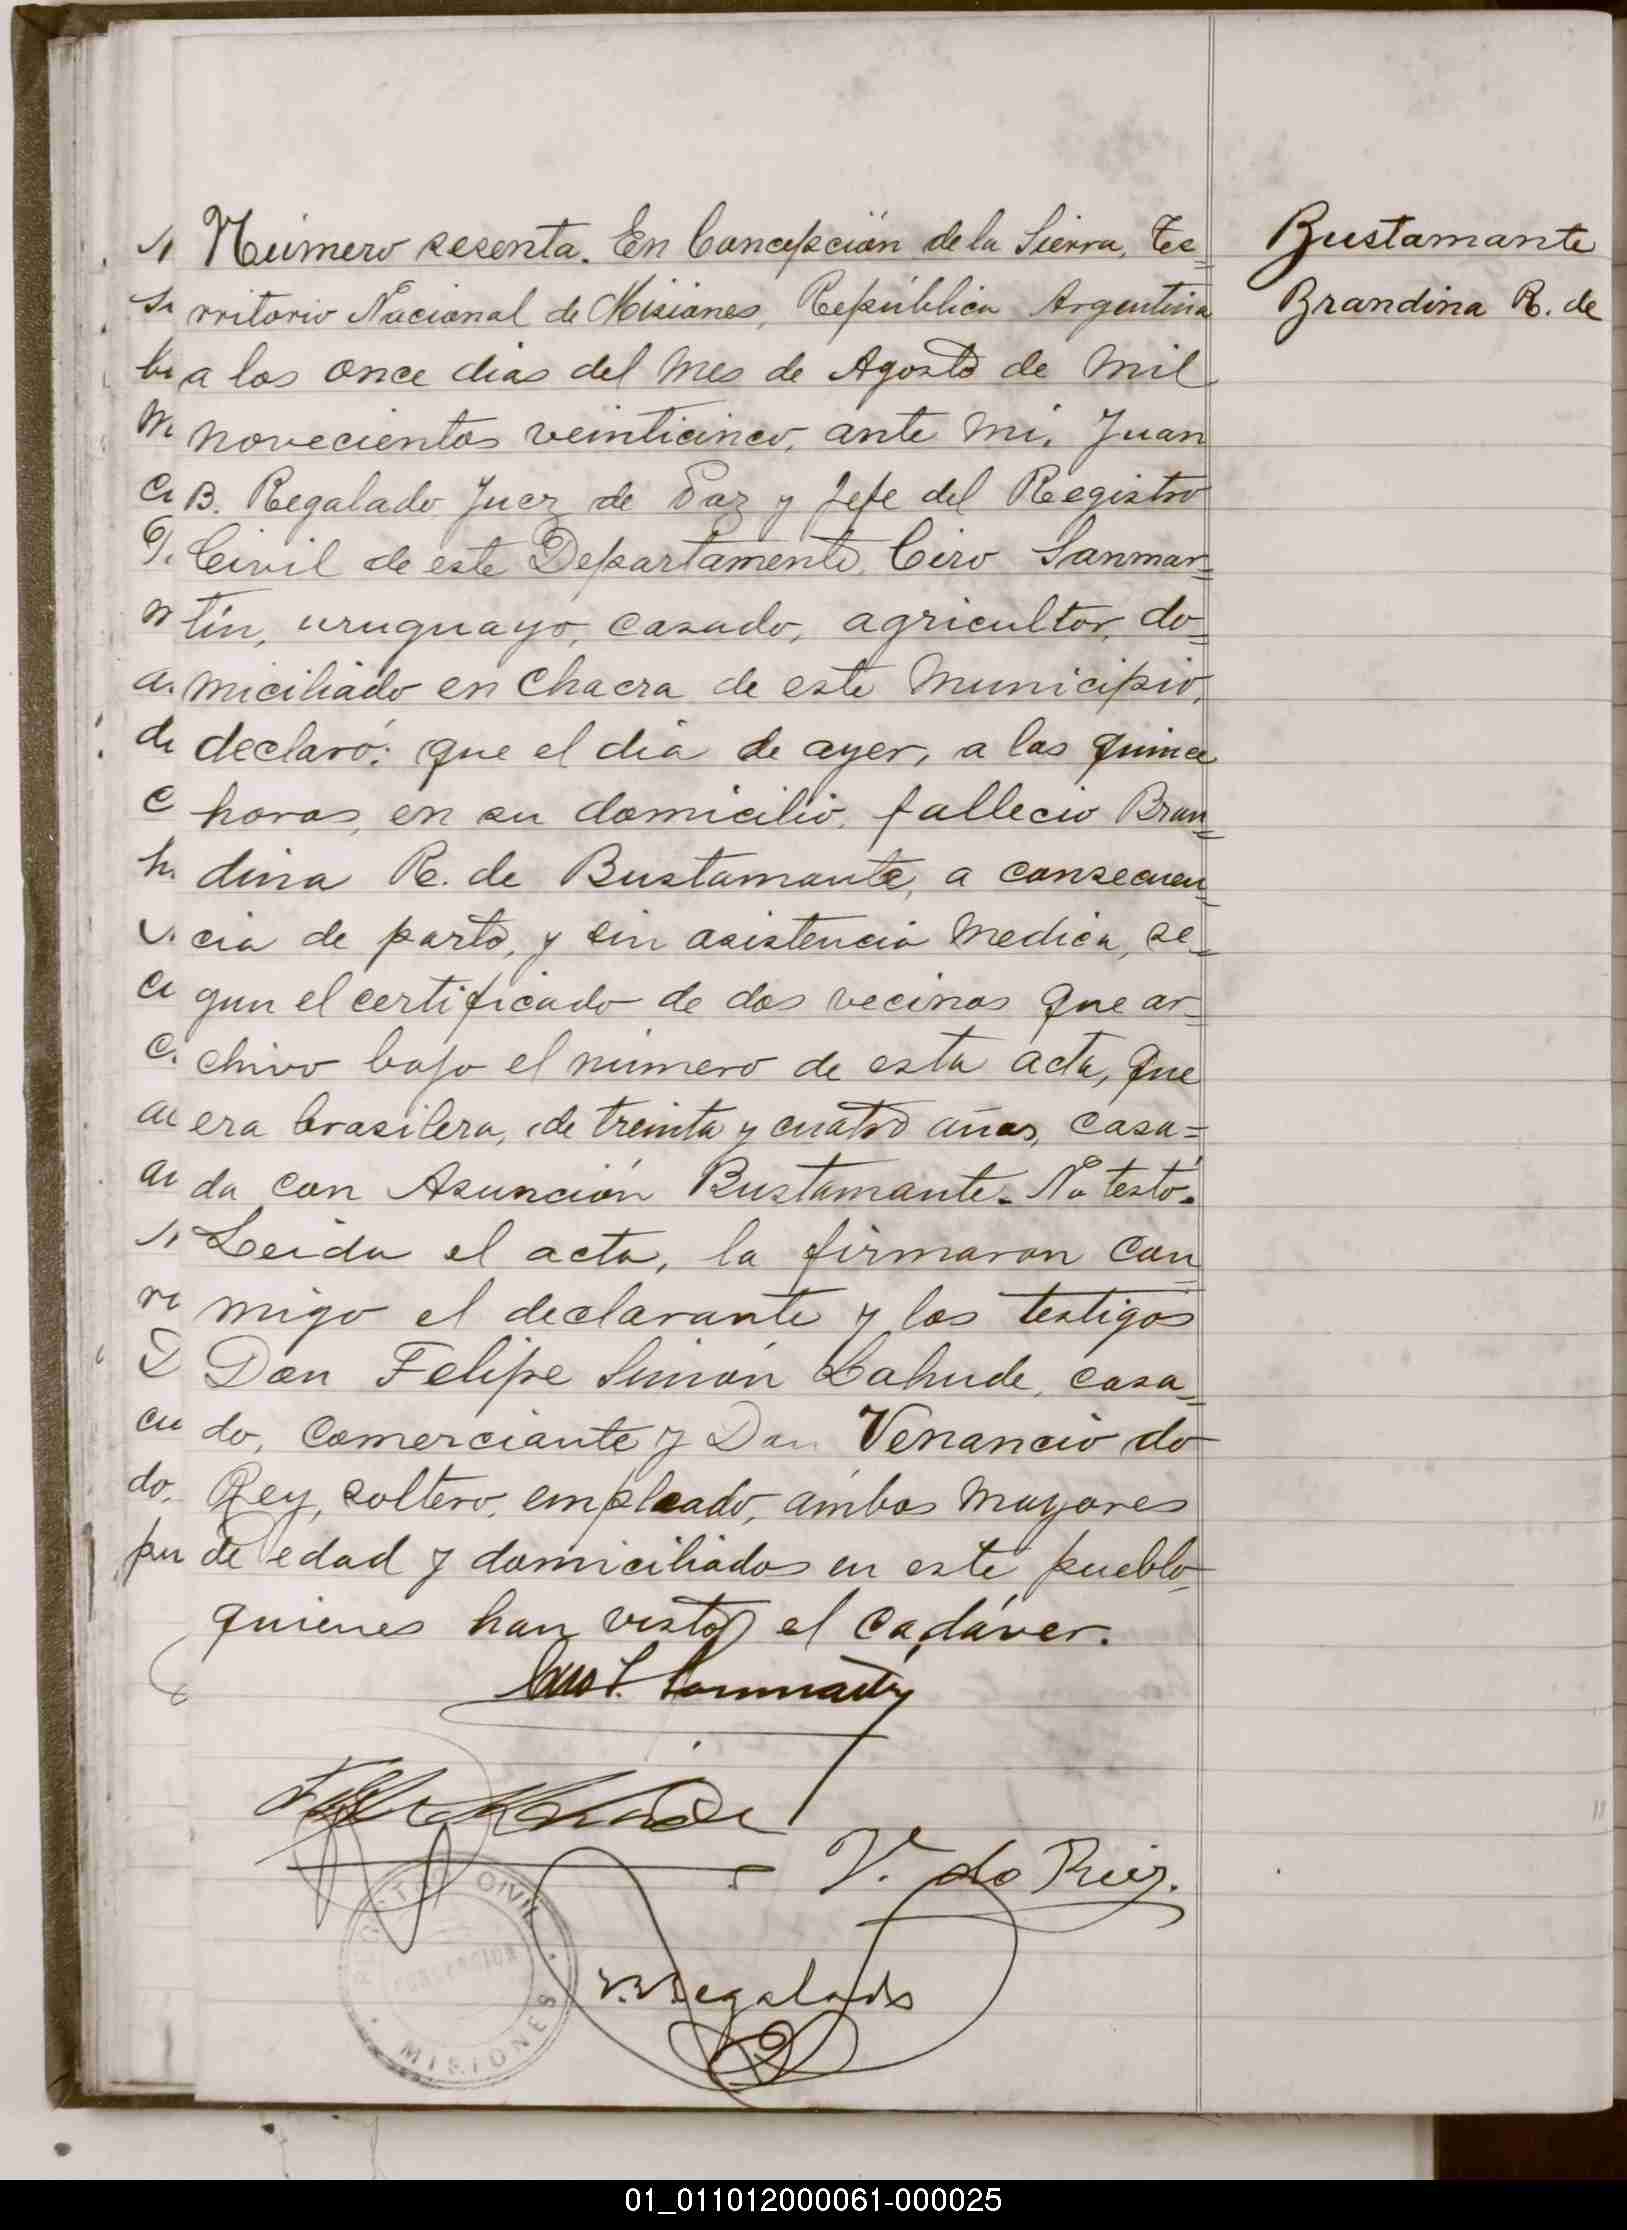 Número sesenta. En Concepción de la Sierra, Te=
rritorio Nacional de Misiones, República Argentina
a los once dias del mes de Agosto de mil
novecientos veinticinco, ante mi, Juan
B. Regalado Juez de Paz y Jefe del Registro
Civil de este Departamento, Ciro Sanmar=
tín, uruguayo, casado, agricultor, do=
miciliado en Chacra de este Municipio,
declaró: que el dia de ayer, a las quince
horas, en su domicilio, fallecio Bran=
dina R. de Bustamante, a consecuen=
cia de parto, y sin asistencia medica, se=
gun el certificado de dos vecinos que ar=
chivo bajo el número de esta acta, que
era brasilera, de treinta y cuatro años, casa=
da con Asunción Bustamante. No testó.
Leida el acta, la firmaron con
migo el declarante y los testigos
Don Felipe Simón Lahude, casa=
do, comerciante y Don Venancio do
Rey, soltero, empleado, ámbos mayores
de edad y domiciliados en este pueblo
quienes han visto el cadáver.
Bustamante
Brandina R. de
V. do Rey.
J.B. Regalado
REGISTRO CIVIL
CONCEPCION
MISIONES
01_011012000061-000025